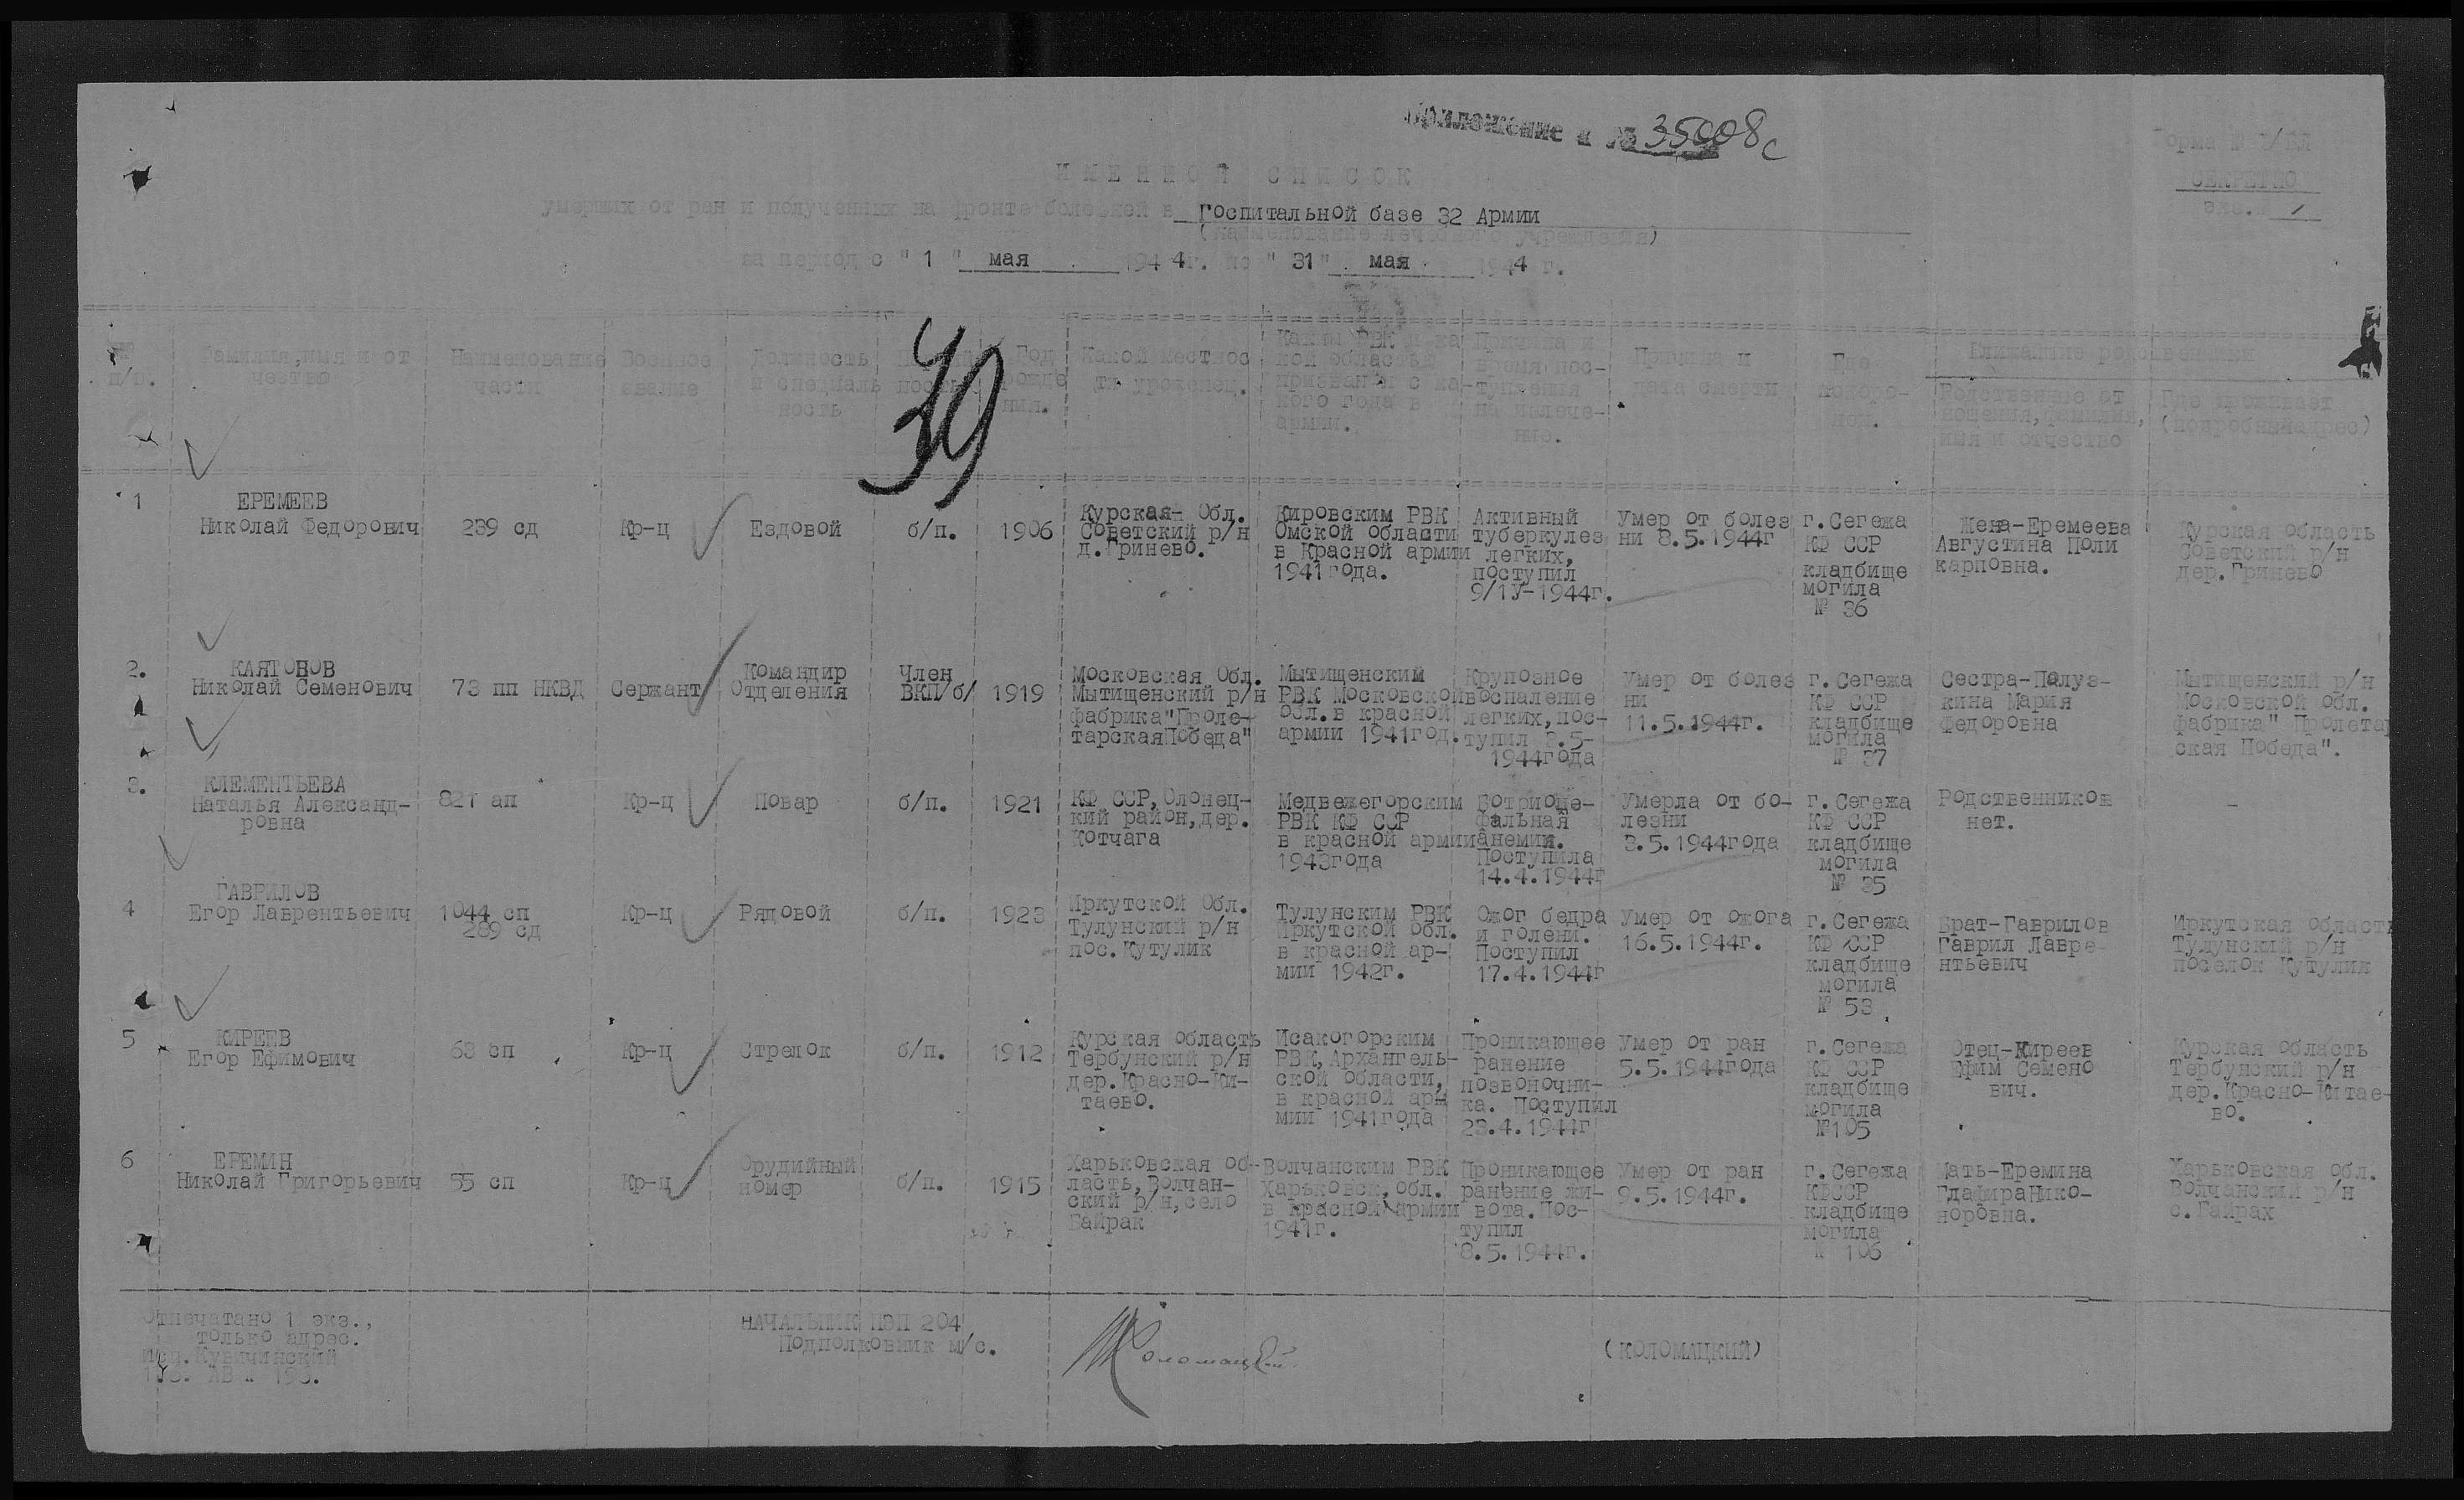 Приложение к № 35008с
СЕКРЕТНО
экз. 1
ИМЕННОЙ СПИСОК
умерших от ран и полученных на фронте болезней в Госпитальной базе 32 Армии
(наименование лечебного учреждения)
за период с "1" мая 1944г. по "31" мая 1944 г.
39
п/п.
Фамилия, имя и от
чество
Наименование
части
Военное
звание
Должность
и специаль
ность
Год
рожде
ния.
Какой местнос
ти уроженец.
Каким РВК
кой области
призван и с ка-
кого года в
армии.
Причина и
время пос-
тупления
на излече-
ние.
Причина и
дата смерти
Где
похоро-
нен.
Ближайшие родственники
Родственные от
ношения, фамилия,
имя и отчество
Где проживает
(подробный адрес)
1
ЕРЕМЕЕВ
Николай Федорович
239 сд
Кр-ц
Ездовой
б/п.
1906
Курская Обл.
Советский р/н
д.Гринево.
Кировским РВК
Омской области
в Красной армии
1941года.
Активный
туберкулез
легких,
поступил
9/1У-1944г.
Умер от болез
ни 8.5.1944г
г.Сегежа
КФ ССР
кладбище
могила
№ 36
Жена-Еремеева
Августина Поли
карповна.
Курская область
Советский р/н
дер.Гринево
2.
КАЯТОНОВ
Николай Семенович
73 пп НКВД
Сержант
Командир
Отделения
Член
ВКП/б/
1919
Московская Обл.
Мытищенский р/н
фабрика"Проле-
тарскаяПобеда"
Мытищенский
РВК Московской
обл.в красной
армии 1941год.
Крупозное
воспаление
легких,пос-
тупил 3.5-
1944года
Умер от болез
ни
11.5.1944г.
г.Сегежа
КФ ССР
кладбище
могила
№ 37
Сестра-Полуэ-
кина Мария
Федоровна
Мытищенский р/н
Московской обл.
фабрика" Пролетар
ская Победа".
3.
КЛЕМЕНТЬЕВА
Наталья Александ-
ровна
821 ап
Кр-ц
Повар
б/п.
1921
КФ ССР,Олонец-
кий район,дер.
Котчага
Медвежегорским
РВК КФ ССР
в красной армии
1943года
Ботриоце-
фальная
анемия.
Поступила
14.4.1944г
Умерла от бо-
лезни
3.5.1944года
г.Сегежа
КФ ССР
кладбище
могила
№ 35
Родственников
нет.
-
4
ГАВРИЛОВ
Егор Лаврентьевич
1044 сп
289 сд
Кр-ц
Рядовой
б/п.
1923
Иркутской Обл.
Тулунский р/н
пос.Кутулик
Тулунским РВК
Иркутской обл.
в красной ар-
мии 1942г.
Ожог бедра
и голени.
Поступил
17.4.1944г
Умер от ожога
16.5.1944г.
г.Сегежа
КФ ССР
кладбище
могила
№ 53
Брат-Гаврилов
Гаврил Лавре-
нтьевич
Иркутская область
Тулунский р/н
поселок Кутулик
5
КИРЕЕВ
Егор Ефимович
63 сп
Кр-ц
Стрелок
б/п.
1912
Курская область
Тербунский р/н
дер.Красно-Ки-
таево.
Исакогорским
РВК,Архангель-
ской области,
в красной арм
мии 1941года
Проникающее
ранение
позвоночни-
ка. Поступил
23.4.1944г
Умер от ран
5.5.1944года
г.Сегежа
КФ ССР
кладбище
могила
№105
Отец-Киреев
Ефим Семено
вич.
Курская область
Тербунский р/н
дер.Красно-Китае-
во.
6
ЕРЕМИН
Николай Григорьевич
55 сп
Кр-ц
Орудийный
номер
б/п.
1915
Харьковская об-
ласть,Волчан-
ский р/н,село
Байрак
Волчанским РВК
Харьковск.обл.
в красной армии
1941г.
Проникающее
ранение жи-
вота.Пос-
тупил
8.5.1944г.
Умер от ран
9.5.1944г.
г.Сегежа
КФССР
кладбище
могила
№ 106
Мать-Еремина
ГлафираНико-
норовна.
Харьковская обл.
Волчанский р/н
с.Гайрах
Отпечатано 1 экз.,
только адрес.
НАЧАЛЬНИК ПЭП 204
Подполковник м/с.
Коломацкий
(КОЛОМАЦКИЙ)